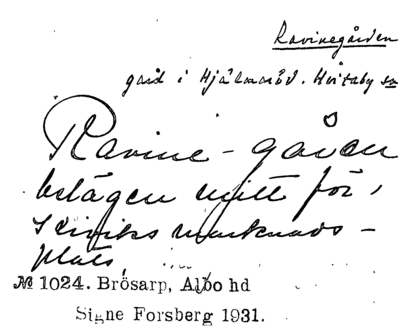 Ravinegården
gård i Hjälmaröd. Hvitaby sn
Ravine-gården
belägen mitt för
Kiviks marknads-
plats.
№ 1024. Brösarp, Albo hd
Signe Forsberg 1931.